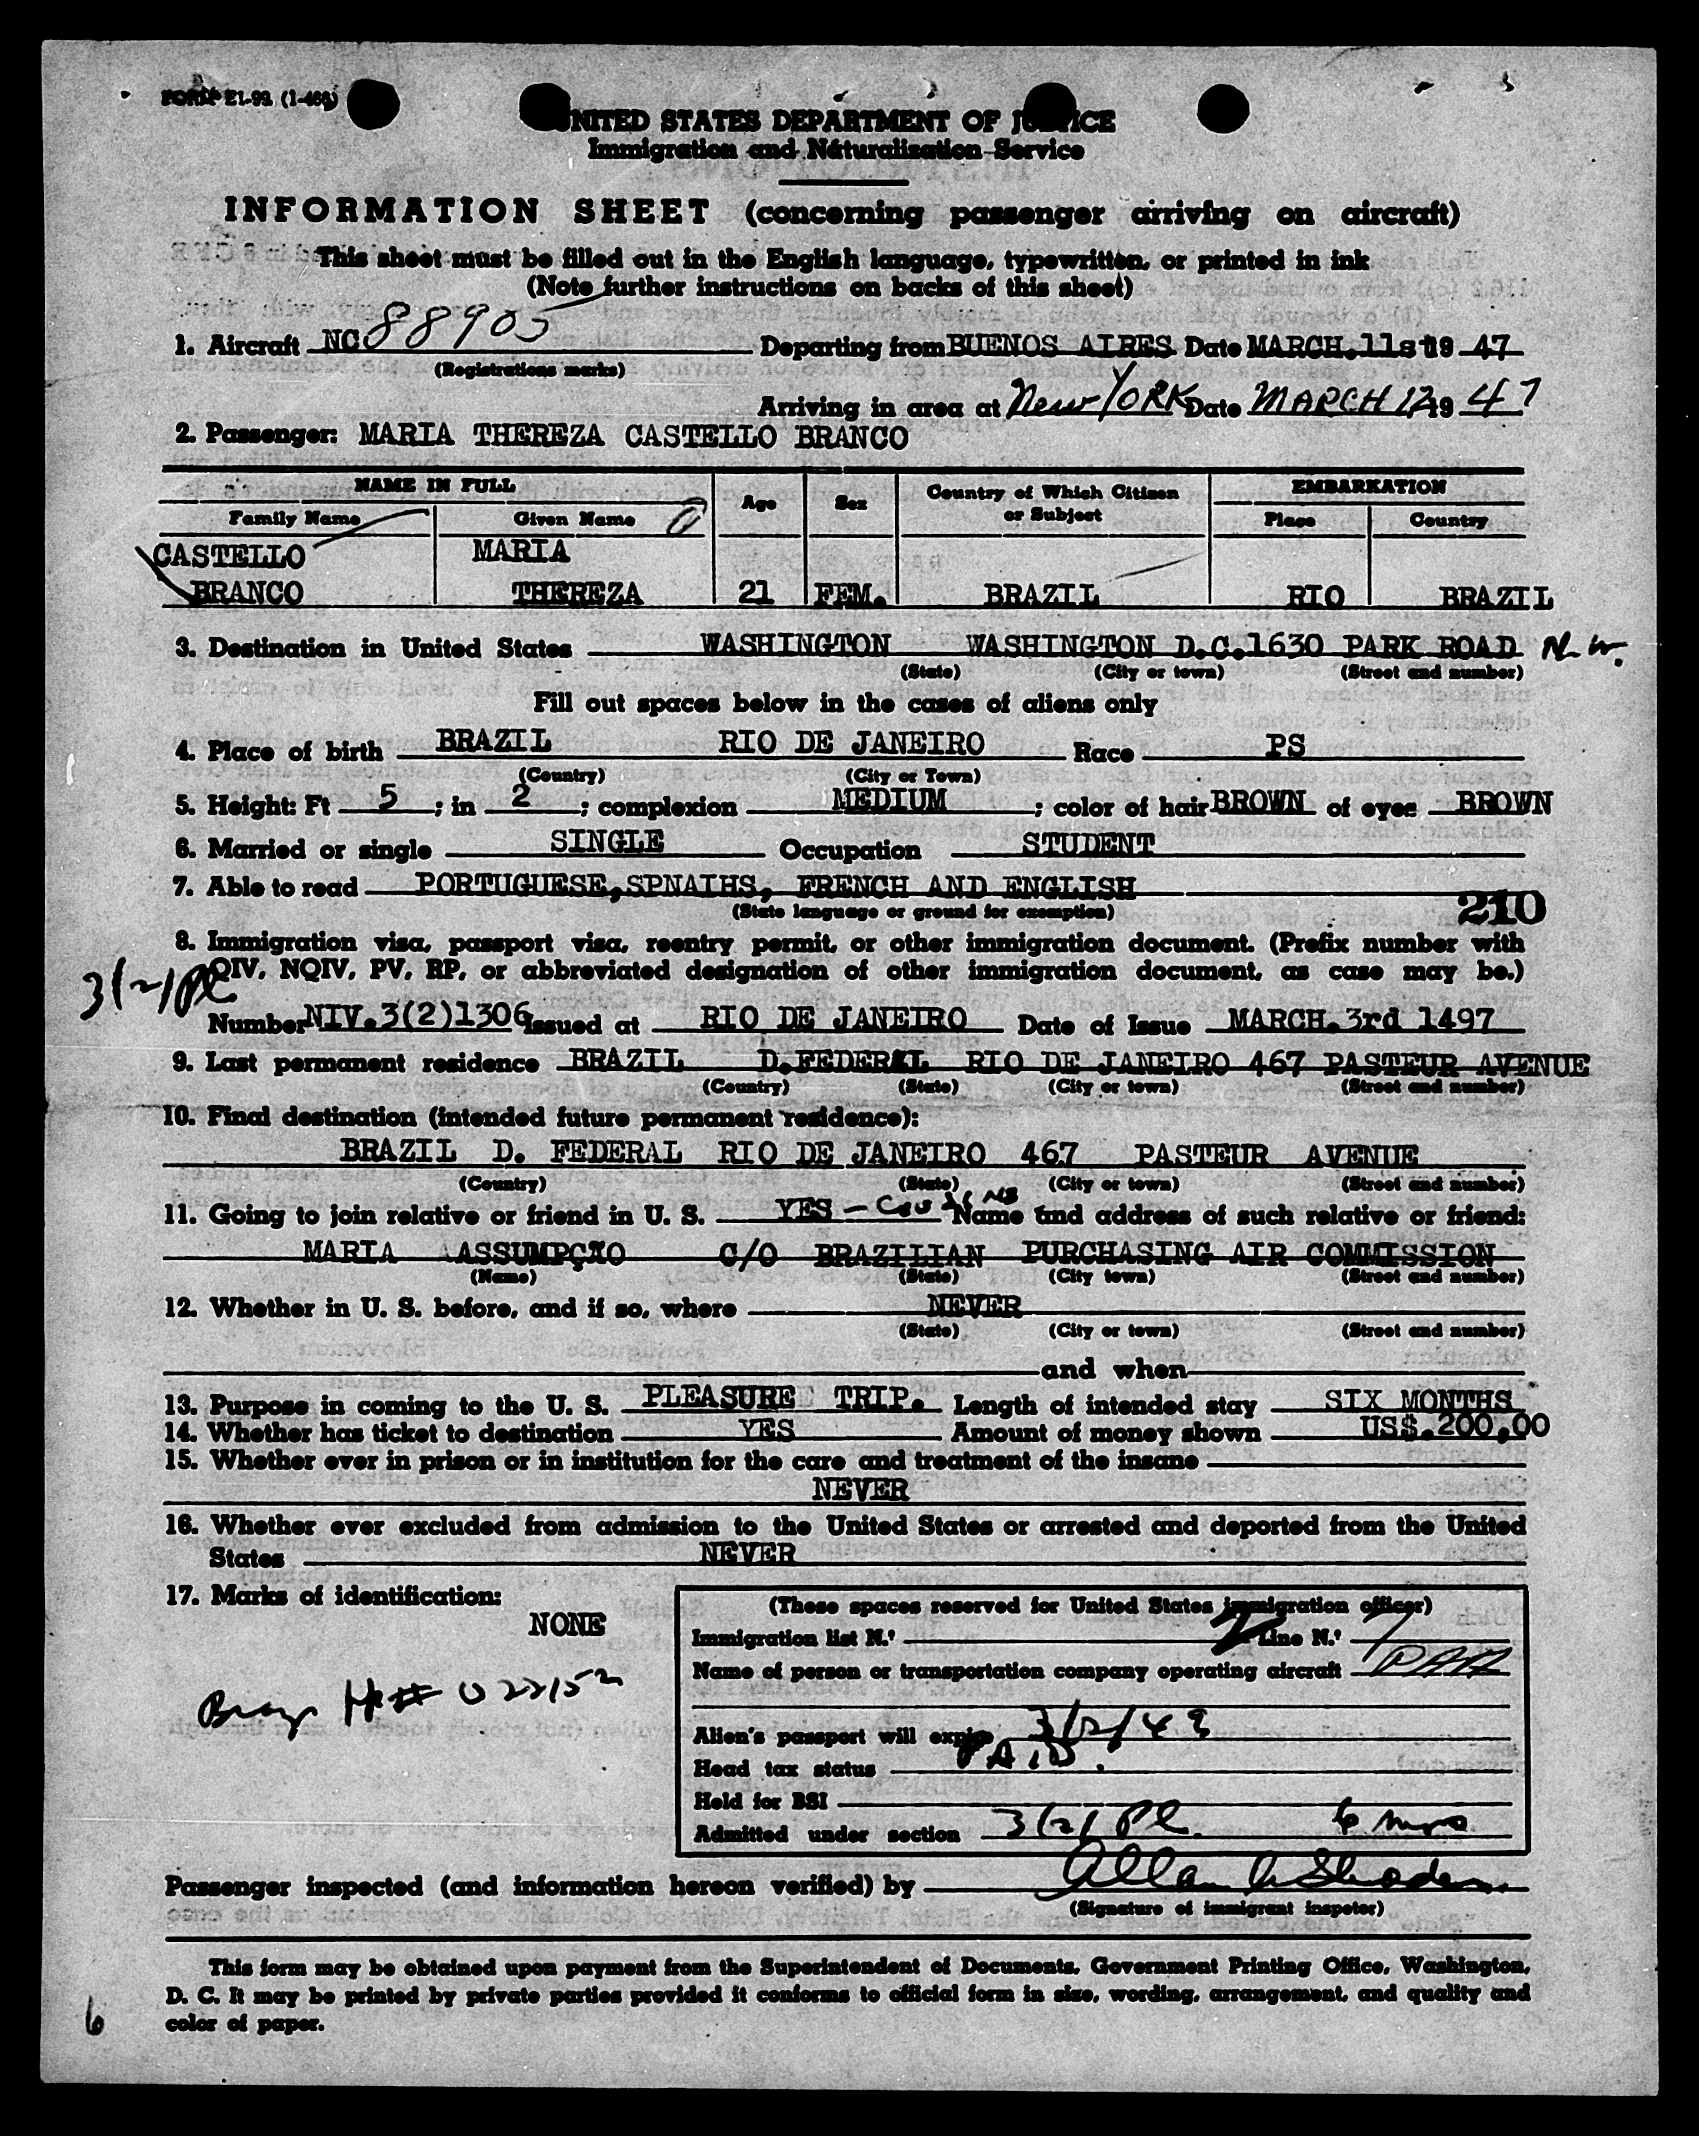 FORM E1-93 (1-466)
UNITED STATES DEPARTMENT OF JUSTICE
Immigration and Naturalization Service
INFORMATION SHEET (concerning passenger arriving on aircraft)
This sheet must be filled out in the English language, typewritten, or printed in ink
(Note further instructions on backs of this sheet)
1. Aircraft NC 88905 Departing from BUENOS AIRES Date MARCH.11st 19 47
(Registrations marks)
Arriving in area at New YORK Date MARCH 12 19 47
2. Passenger: MARIA THEREZA CASTELLO BRANCO
NAME IN FULL Age Sex Country of Which Citizen or Subject EMBARKATION
Family Name Given Name Place Country
CASTELLO MARIA
BRANCO THEREZA 21 FEM. BRAZIL RIO BRAZIL
3. Destination in United States WASHINGTON WASHINGTON D.C.1630 PARK ROAD N.W.
(State) (City or town) (Street and number)
Fill out spaces below in the cases of aliens only
4. Place of birth BRAZIL RIO DE JANEIRO Race PS
(Country) (City or Town)
5. Height: Ft 5 ; in 2 ; complexion MEDIUM ; color of hair BROWN of eyes BROWN
6. Married or single SINGLE Occupation STUDENT
7. Able to read PORTUGUESE,SPNAIHS, FRENCH AND ENGLISH
(State language or ground for exemption)
210
8. Immigration visa, passport visa, reentry permit, or other immigration document. (Prefix number with
QIV, NQIV, PV, RP, or abbreviated designation of other immigration document, as case may be.)
3(2) PL
Number NIV.3(2)1306 Issued at RIO DE JANEIRO Date of Issue MARCH.3rd 1497
9. Last permanent residence BRAZIL D.FEDERAL RIO DE JANEIRO 467 PASTEUR AVENUE
(Country) (State) (City or town) (Street and number)
10. Final destination (intended future permanent residence):
BRAZIL D. FEDERAL RIO DE JANEIRO 467 PASTEUR AVENUE
(Country) (State) (City or town) (Street and number)
11. Going to join relative or friend in U. S. YES - Name and address of such relative or friend:
MARIA ASSUMPÇÃO C/O BRAZILIAN PURCHASING AIR COMMISSION
(Name) (State) (City town) (Street and number)
12. Whether in U. S. before, and if so, where NEVER
(State) (City or town) (Street and number)
and when
13. Purpose in coming to the U. S. PLEASURE TRIP. Length of intended stay SIX MONTHS
14. Whether has ticket to destination YES Amount of money shown US$.200,00
15. Whether ever in prison or in institution for the care and treatment of the insane
NEVER
16. Whether ever excluded from admission to the United States or arrested and deported from the United
States NEVER
17. Marks of identification:
NONE
(These spaces reserved for United States immigration officer)
Immigration list N.º 2 Line N.º 7
Name of person or transportation company operating aircraft PAA
Alien's passport will expire
Head tax status PAID.
Held for BSI
Admitted under section 3(2) PL. 6 mos
Passenger inspected (and information hereon verified) by
(Signature of immigrant inspetor)
This form may be obtained upon payment from the Superintendent of Documents, Government Printing Office, Washington,
D. C. It may be printed by private parties provided it conforms to official form in size, wording, arrangement, and quality and
color of paper.
6